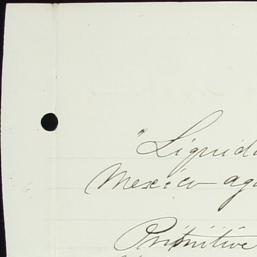 "Liquid
Mexico ag
Primitive